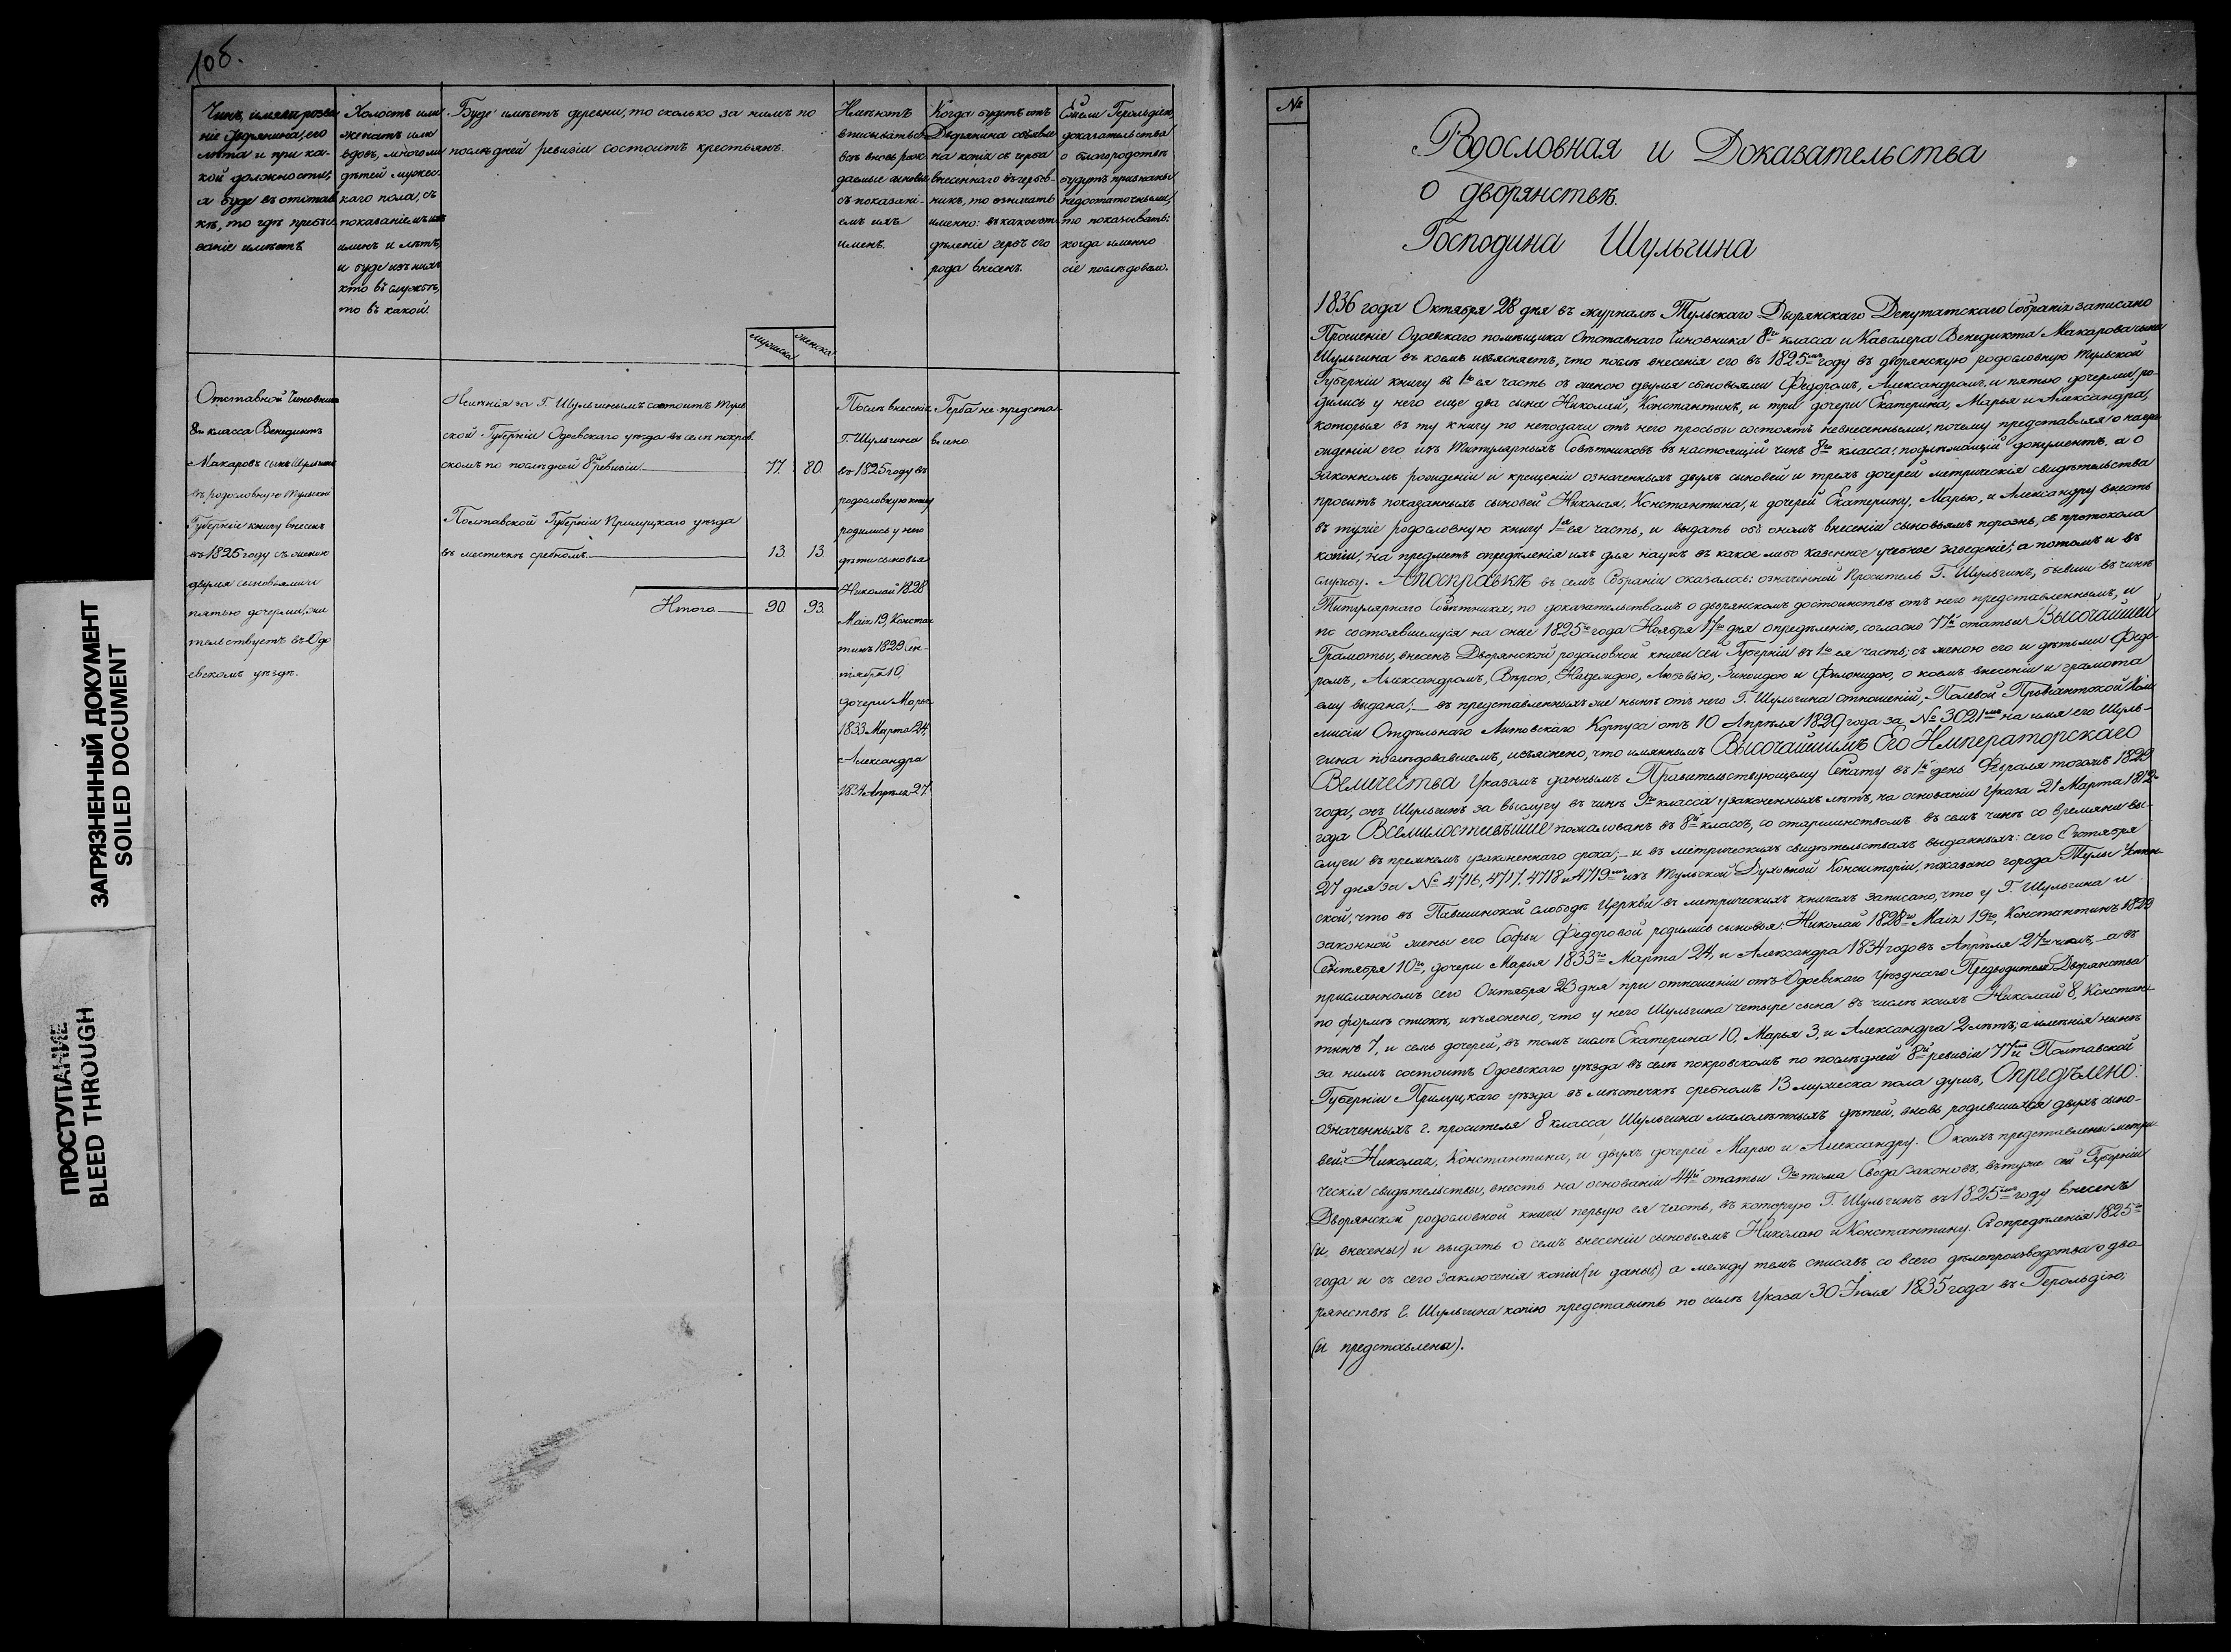 108.
Чинъ, имя и прозва-
ніе Дворянина, его
лѣта и при ка-
кой должности,
а буде въ отстав-
кѣ, то гдѣ пребы-
ваніе имѣетъ.
Холостъ или
женатъ или
вдовъ, много ли
дѣтей мужес-
каго пола, съ
показаніемъ ихъ
именъ и лѣтъ,
и буде изъ нихъ
кто въ службѣ,
то въ какой.
Буде имѣетъ деревни, то сколько за нимъ по
послѣдней ревизіи состоитъ крестьянъ.
мужска
женска
Имѣютъ
вписываться
всѣ вновь рож-
даемые сыновья
съ показані-
емъ ихъ
именъ.
Когда будетъ отъ
Дворянина объявле
на копія съ герба
внесеннаго въ гербов-
никъ, то означать
именно: въ какое от-
дѣленіе гербъ его
рода внесенъ.
Ежели Герольдіею
доказательства
о благородствѣ
будутъ признаны
недостаточными,
то показывать:
когда именно
сіе послѣдовало.
Отставной Чиновникъ
8го класса Венедиктъ
Макаровъ сынъ Шульгинъ
въ родословную Тульской
Губерніи книгу внесенъ
въ 1825 году съ женою
двумя сыновьями и
пятью дочерьми, жи
тельствуетъ въ Одо
евскомъ уѣздѣ.
Имѣнія за Г. Шульгинымъ состоитъ Туль
ской Губерніи Одоевскаго уѣзда въ селѣ покров
скомъ по послѣдней 8й ревизіи 77. 80.
Полтавской Губерніи Прилуцкаго уѣзда
въ местечкѣ сребномъ. 13. 13
Итого 90 93.
Послѣ внесенія
Г. Шульгина
въ 1825 году въ
родословную книгу
родились у него
дѣти сыновья
Николай 1828
Маія 19, Констан
тинъ 1829 Сен-
тября 10,
дочери Марья
1833 Марта 24,
Александра
1834 Апрѣля 27.
Герба не предста-
влено.
№
Родословная и Доказательства
о дворянствѣ.
Господина Шульгина
1836 года Октября 28 дня въ журналѣ Тульскаго Дворянскаго Депутатскаго Собранія записано
Прошеніе Одоевскаго помѣщика Отставнаго Чиновника 8го класса и Кавалера Венедикта Макарова сына
Шульгина въ коемъ изъясняетъ, что послѣ внесенія его въ 1825мъ году въ дворянскую родословную Тульской
Губерніи книгу въ 1ю ея часть съ женою двумя сыновьями Федоромъ, Александромъ, и пятью дочерьми ро-
дились у него еще два сына Николай, Константинъ, и три дочери Екатерина, Марья и Александра,
которыя въ ту книгу по неподачи отъ него просьбы состоятъ невнесенными, почему представляя о награ-
жденіи его изъ Титулярныхъ Совѣтниковъ въ настоящій чинъ 8го класса подлежащій документъ, а о
законномъ рожденіи и крещеніи означенныхъ двухъ сыновей и трехъ дочерей метрическія свидѣтельства
проситъ показанныхъ сыновей Николая, Константина, и дочерей Екатерину, Марью, и Александру внесть
въ туже родословную книгу 1ю ея часть, и выдать объ ономъ внесеніи сыновьямъ порознь, съ протокола
копіи, на предметъ опредѣленія ихъ для наукъ въ какое либо казенное учебное заведеніе, а потомъ и въ
службу. А по справкѣ въ семъ Собраніи оказалось: означенной проситель Г. Шульгинъ, бывши въ чинѣ
Титулярнаго Совѣтника, по доказательствамъ о дворянскомъ достоинствѣ отъ него представленнымъ, и
по состоявшемуся на оные 1825го года Ноября 17го дня опредѣленію, согласно 77й статьи Высочайшей
Грамоты, внесенъ Дворянской родословной книги сей Губерніи въ 1ю ея часть, съ женою его и дѣтьми Федо-
ромъ, Александромъ, Вѣрою, Надеждою, Любовью, Зиноидою и Филонидою, о коемъ внесеніи и грамота
ему выдана;— въ представленныхъ же нынѣ отъ него Г. Шульгина отношеній, Полевой Провіантской Ком
мисіи Отдѣльнаго Литовскаго Корпуса отъ 10 Апрѣля 1829 года за № 3021мъ на имя его Шуль-
гина послѣдовавшемъ, изъяснено, что имяннымъ Высочайшимъ Его Императорскаго
Величества Указомъ даннымъ Правительствующему Сенату въ 1й день Февраля того жъ 1829
года, онъ Шульгинъ за выслугу въ чинѣ 9го класса узаконенныхъ лѣтъ, на основаніи Указа 21 Марта 1812го
года Всемилостивѣйше пожалованъ въ 8й классъ, со старшинствомъ въ семъ чинѣ со времяни вы-
слуги въ прежнемъ узаконеннаго срока;— и въ метрическихъ свидѣтельствахъ выданныхъ: сего Октября
27 дня за № 4716, 4717, 4718 и 4719мъ изъ Тульской Духовной Консисторіи, показано города Тулы Успен-
ской, что въ Павшинской слободѣ Церкви въ метрическихъ книгахъ записано, что у Г. Шульгина и
законной жены его Софьи Федоровой родились сыновья: Николай 1828го Маія 19го, Константинъ 1829
Сентября 10го, дочери Марья 1833го Марта 24, и Александра 1834 годовъ Апрѣля 27го числъ, а въ
присланномъ сего Октября 23 дня при отношеніи отъ Одоевскаго Уѣзднаго Предводителя Дворянства
по формѣ спискѣ, изъяснено, что у него Шульгина четыре сына въ числѣ коихъ Николай 8, Констан-
тинъ 7, и семь дочерей, въ томъ числѣ Екатерина 10, Марья 3, и Александра 2 лѣтъ; а имѣнія нынѣ
за нимъ состоитъ Одоевскаго уѣзда въ селѣ покровскомъ по послѣдней 8й ревизіи 77мь и Полтавской
Губерніи Прилуцкаго уѣзда въ мѣстечкѣ сребномъ 13 мужеска пола душъ, Опредѣлено:
означенныхъ г. просителя 8 класса Шульгина малолѣтныхъ дѣтей, вновь родившихся двухъ сыно-
вей: Николая, Константина, и двухъ дочерей Марью и Александру. О коихъ представлены метри-
ческія свидѣтельствы, внесть на основаніи 44й статьи 9го тома Свода Законовъ, въ туже сей Губерніи
Дворянской родословной книги первую ея часть, въ которую Г. Шульгинъ въ 1825мъ году внесенъ
(и внесены) и выдать о семъ внесеніи сыновьямъ Николаю и Константину. Съ опредѣленія 1825го
года и съ сего заключенія копіи (и даны;) а между темъ списавъ со всего дѣлопроизводства о дво-
рянствѣ Г. Шульгина копію представить по силѣ Указа 30 Іюля 1835 года въ Герольдію;
(и представлена).
ЗАГРЯЗНЕННЫЙ ДОКУМЕНТ
SOILED DOCUMENT
ПРОСТУПАНИЕ
BLEED THROUGH